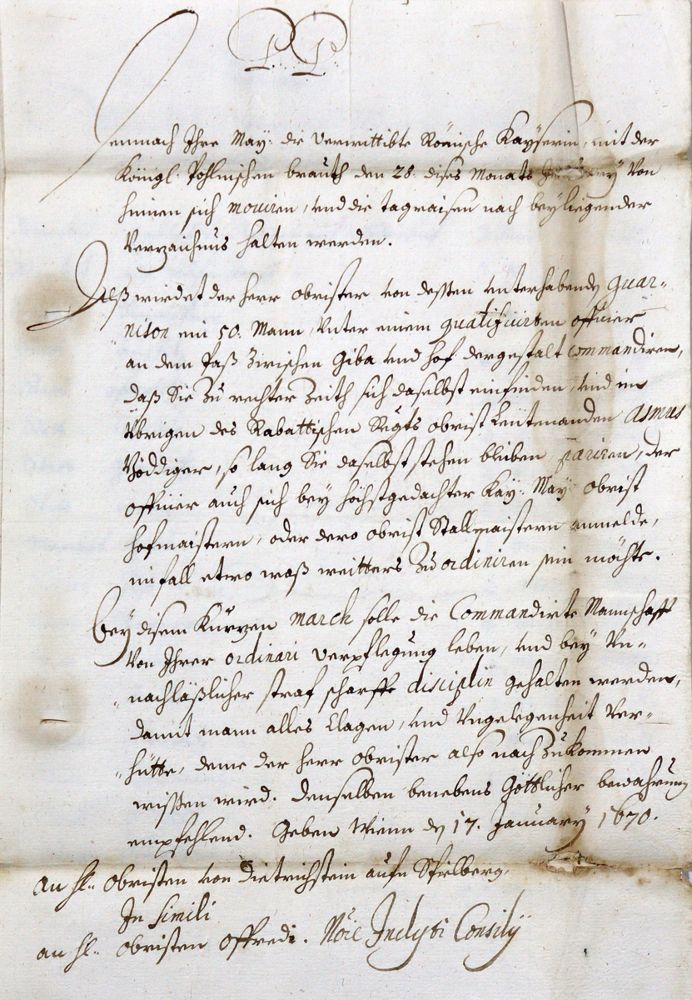 P. P.
Demnach Ihre May: die verwittibte Römische Kayserin, mit der
Königl: Pohlnischen brauth den 28. dises Monats January von
hinnen sich moviren, vnd die tagraisen nach beyligender
Verzaichnus halten werden.
Alß wirdet der Herr obrister von dessen vnterhabenden guar-
nison ein 50. Mann, vnter einem qualificirten officier
an dem Paß zwischen Giba vnd Hof dergestalt commandiren,
daß Sie zu rechter Zeith sich daselbst einfinden, vnd im
übrigen des Rabattischen Rgts obrist Leütenanden Asmus
Bödiger, so lang Sie daselbst stehen bleiben pariren, der
officier auch sich bey höchstgedachter Kay: May: obrist
hofmaistern, oder dero obrist Stallmaistern anmelde,
im fall etwo waß weitters zu ordiniren sein möchte.
Bey disem kurzen march solle die Commandirte Mannschafft
von Ihrer ordinari verpflegung leben, vnd bey vn-
nachläßlicher straf scharffe disciplin gehalten werden,
damit mann alles Clagen, vnd vngelegenheit ver-
hütte, deme der Herr obrister also nach zu kommen
wissen wird. denselben benebens Göttlicher bewahrung
empfehlend. Geben Wienn den 17. January 1670.
An H:: obristen von Dietrichstein aufn Spilberg.
In simili
an H:: obristen Offredi. Nõie Inclyti Consilij